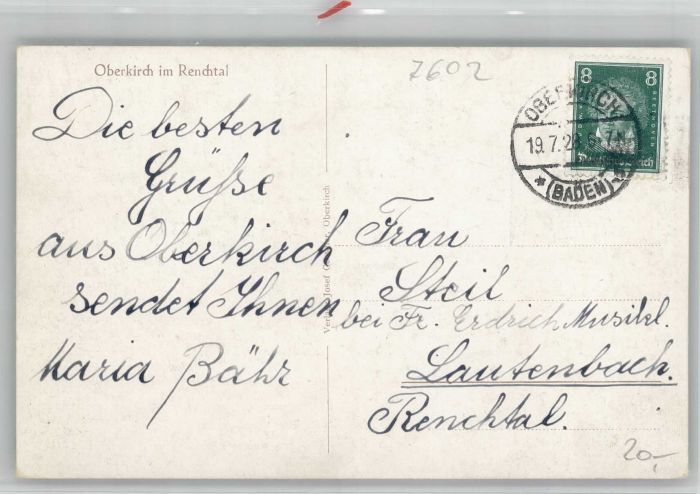 Oberkirch im Renchtal
7602
8 8
BEETHOVEN
OBERKIRCH
19.7.28
(BADEN)
Die besten
Grüße
aus Oberkirch
sendet Ihnen
Maria Bähr
Josef Oberkirch
Frau
Steil
bei Fr. Erdrich Musikl.
Lautenbach.
Renchtal.
20,-